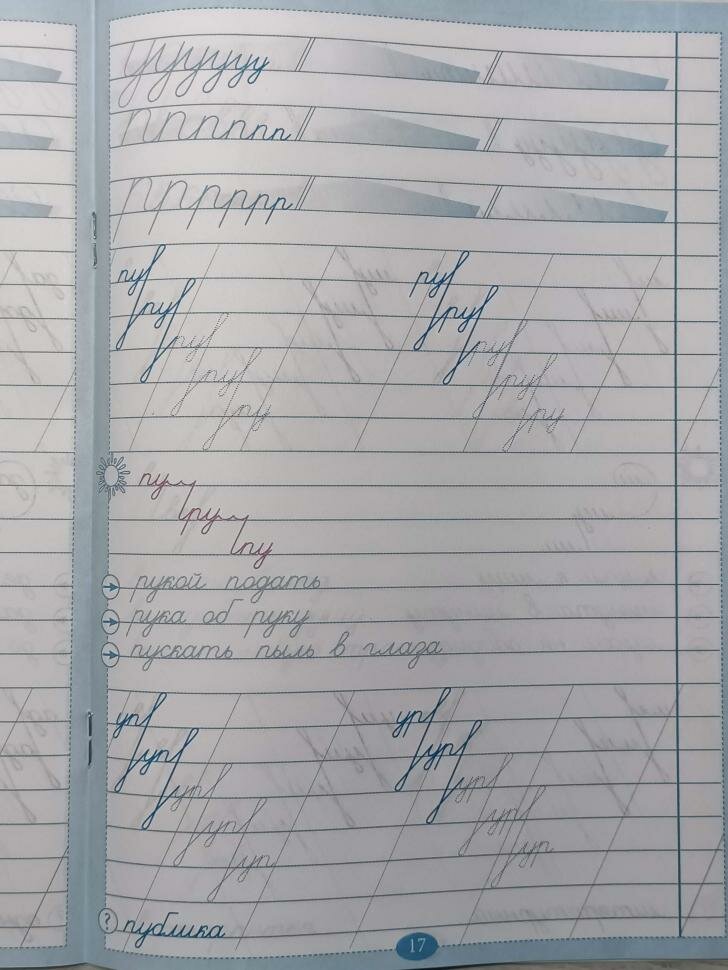 ууууууу
ппппппп
ррррррр
пу ру
пу ру
пу ру
пу ру
пу ру
пу
ру
пу
рукой подать
рука об руку
пускать пыль в глаза
уп ур
уп ур
уп ур
уп ур
уп ур
? публика
17